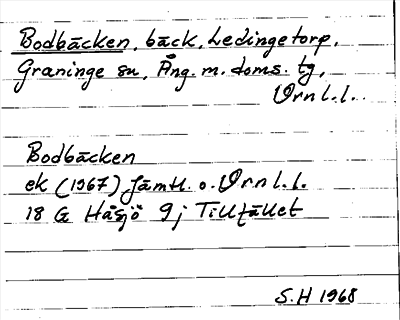 Bodbäcken, bäck, Ledingetorp,
Graninge sn, Ång. m. doms. tg,
Vrnl.l.
Bodbäcken
ek (1967) Jämtl. o. Vrnl.l.
18 G Håsjö 9j Tillfället
S.H 1968